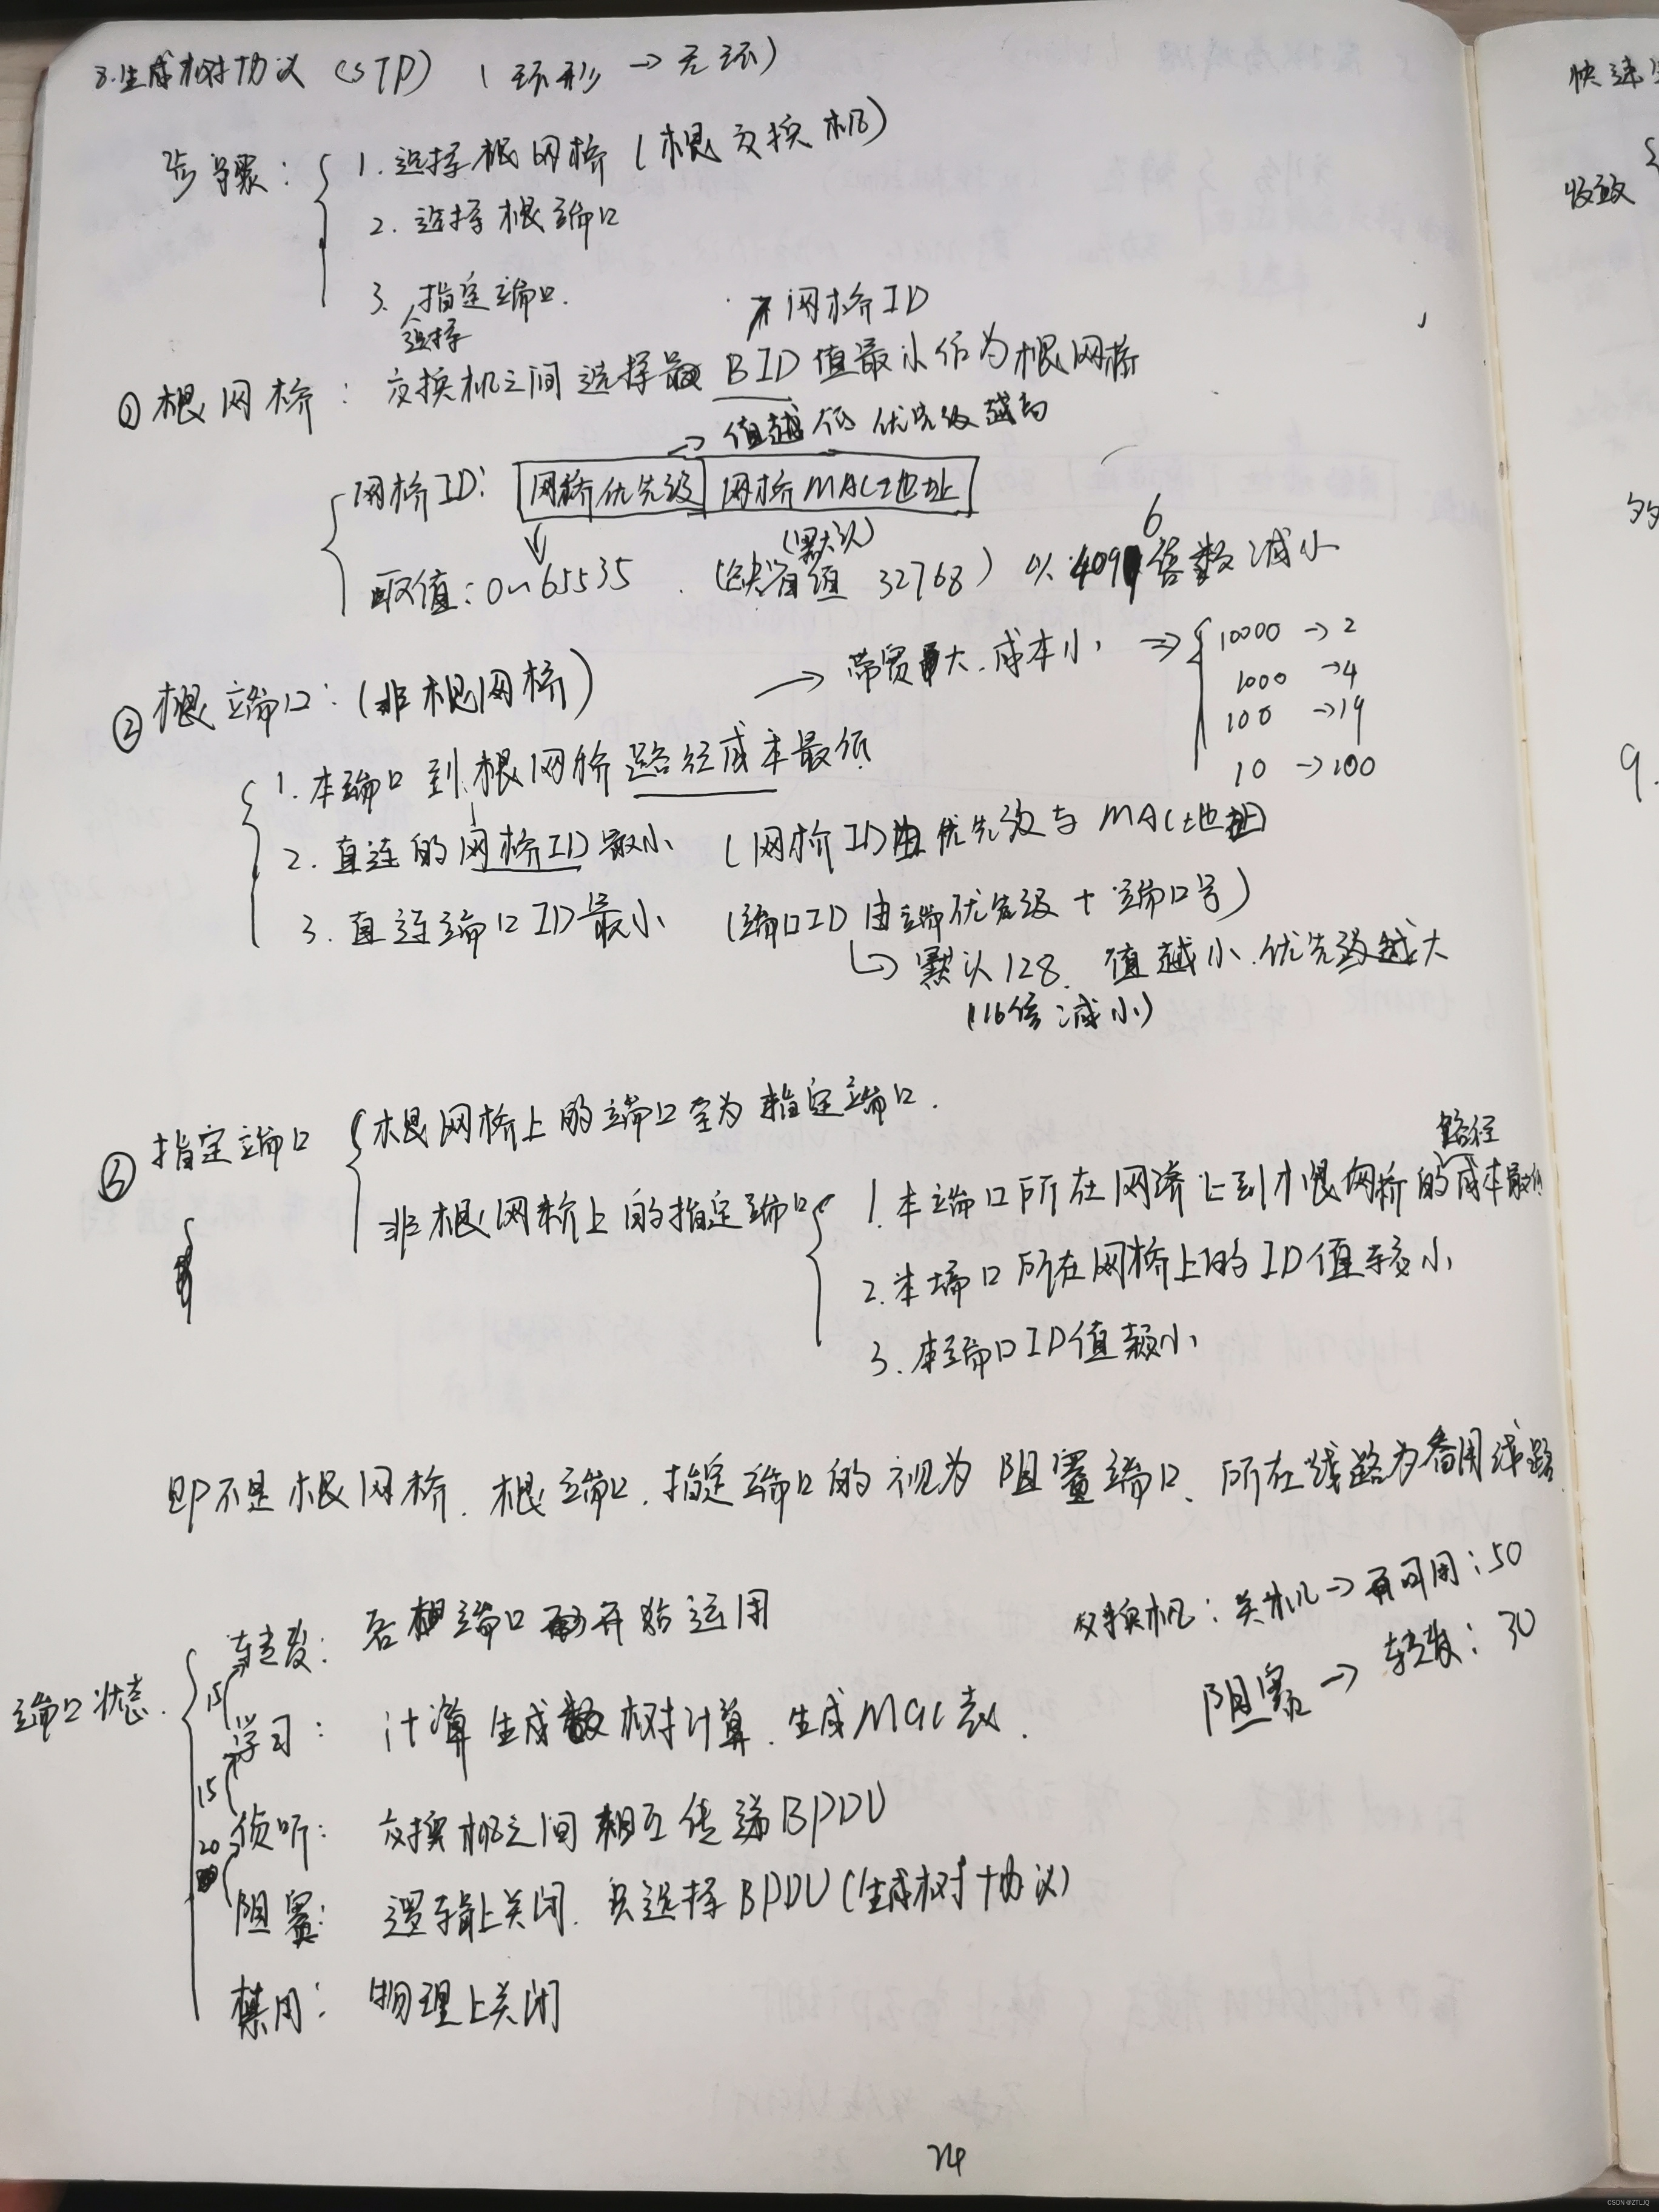 8.生成树协议（STP）（环形→无环）
步骤：
1.选择根网桥（根交换机）
2.选择根端口
3.选择指定端口.
网桥ID
①根网桥：交换机之间选择 BID 值最小作为根网桥
→值越低优先级越高
网桥ID：网桥优先级 网桥MAC地址
（默认）
取值：0~65535．（缺省值 32768）以4096倍数减小
②根端口：（非根网桥）
→带宽大.成本小 ⇒
10000→2
1000→4
100→19
10→100
1.本端口到根网桥路径成本最低
2.直连的网桥ID最小（网桥ID由优先级与MAC地址）
3.直连端口ID最小（端口ID由端优先级+端口号）
↳默认128．值越小.优先级越大
（16倍减小）
③指定端口
根网桥上的端口全为指定端口．
非根网桥上的指定端口
1.本端口所在网桥上到根网桥的路径成本最低
2.本端口所在网桥上的ID值较小
3.本端口ID值较小
即不是根网桥．根端口．指定端口的视为阻塞端口、所在线路为备用线路．
端口状态．
转发：各端口开始运用
15
学习：计算生成树计算．生成MAC表．
15
侦听：交换机之间相互传递BPDU
20
阻塞：逻辑上关闭．只选择BPDU（生成树协议）
禁用：物理上关闭
交换机：关机→再可用：50
阻塞→转发：30
24
快速
收敛
9.
CSDN @ZTLJQ